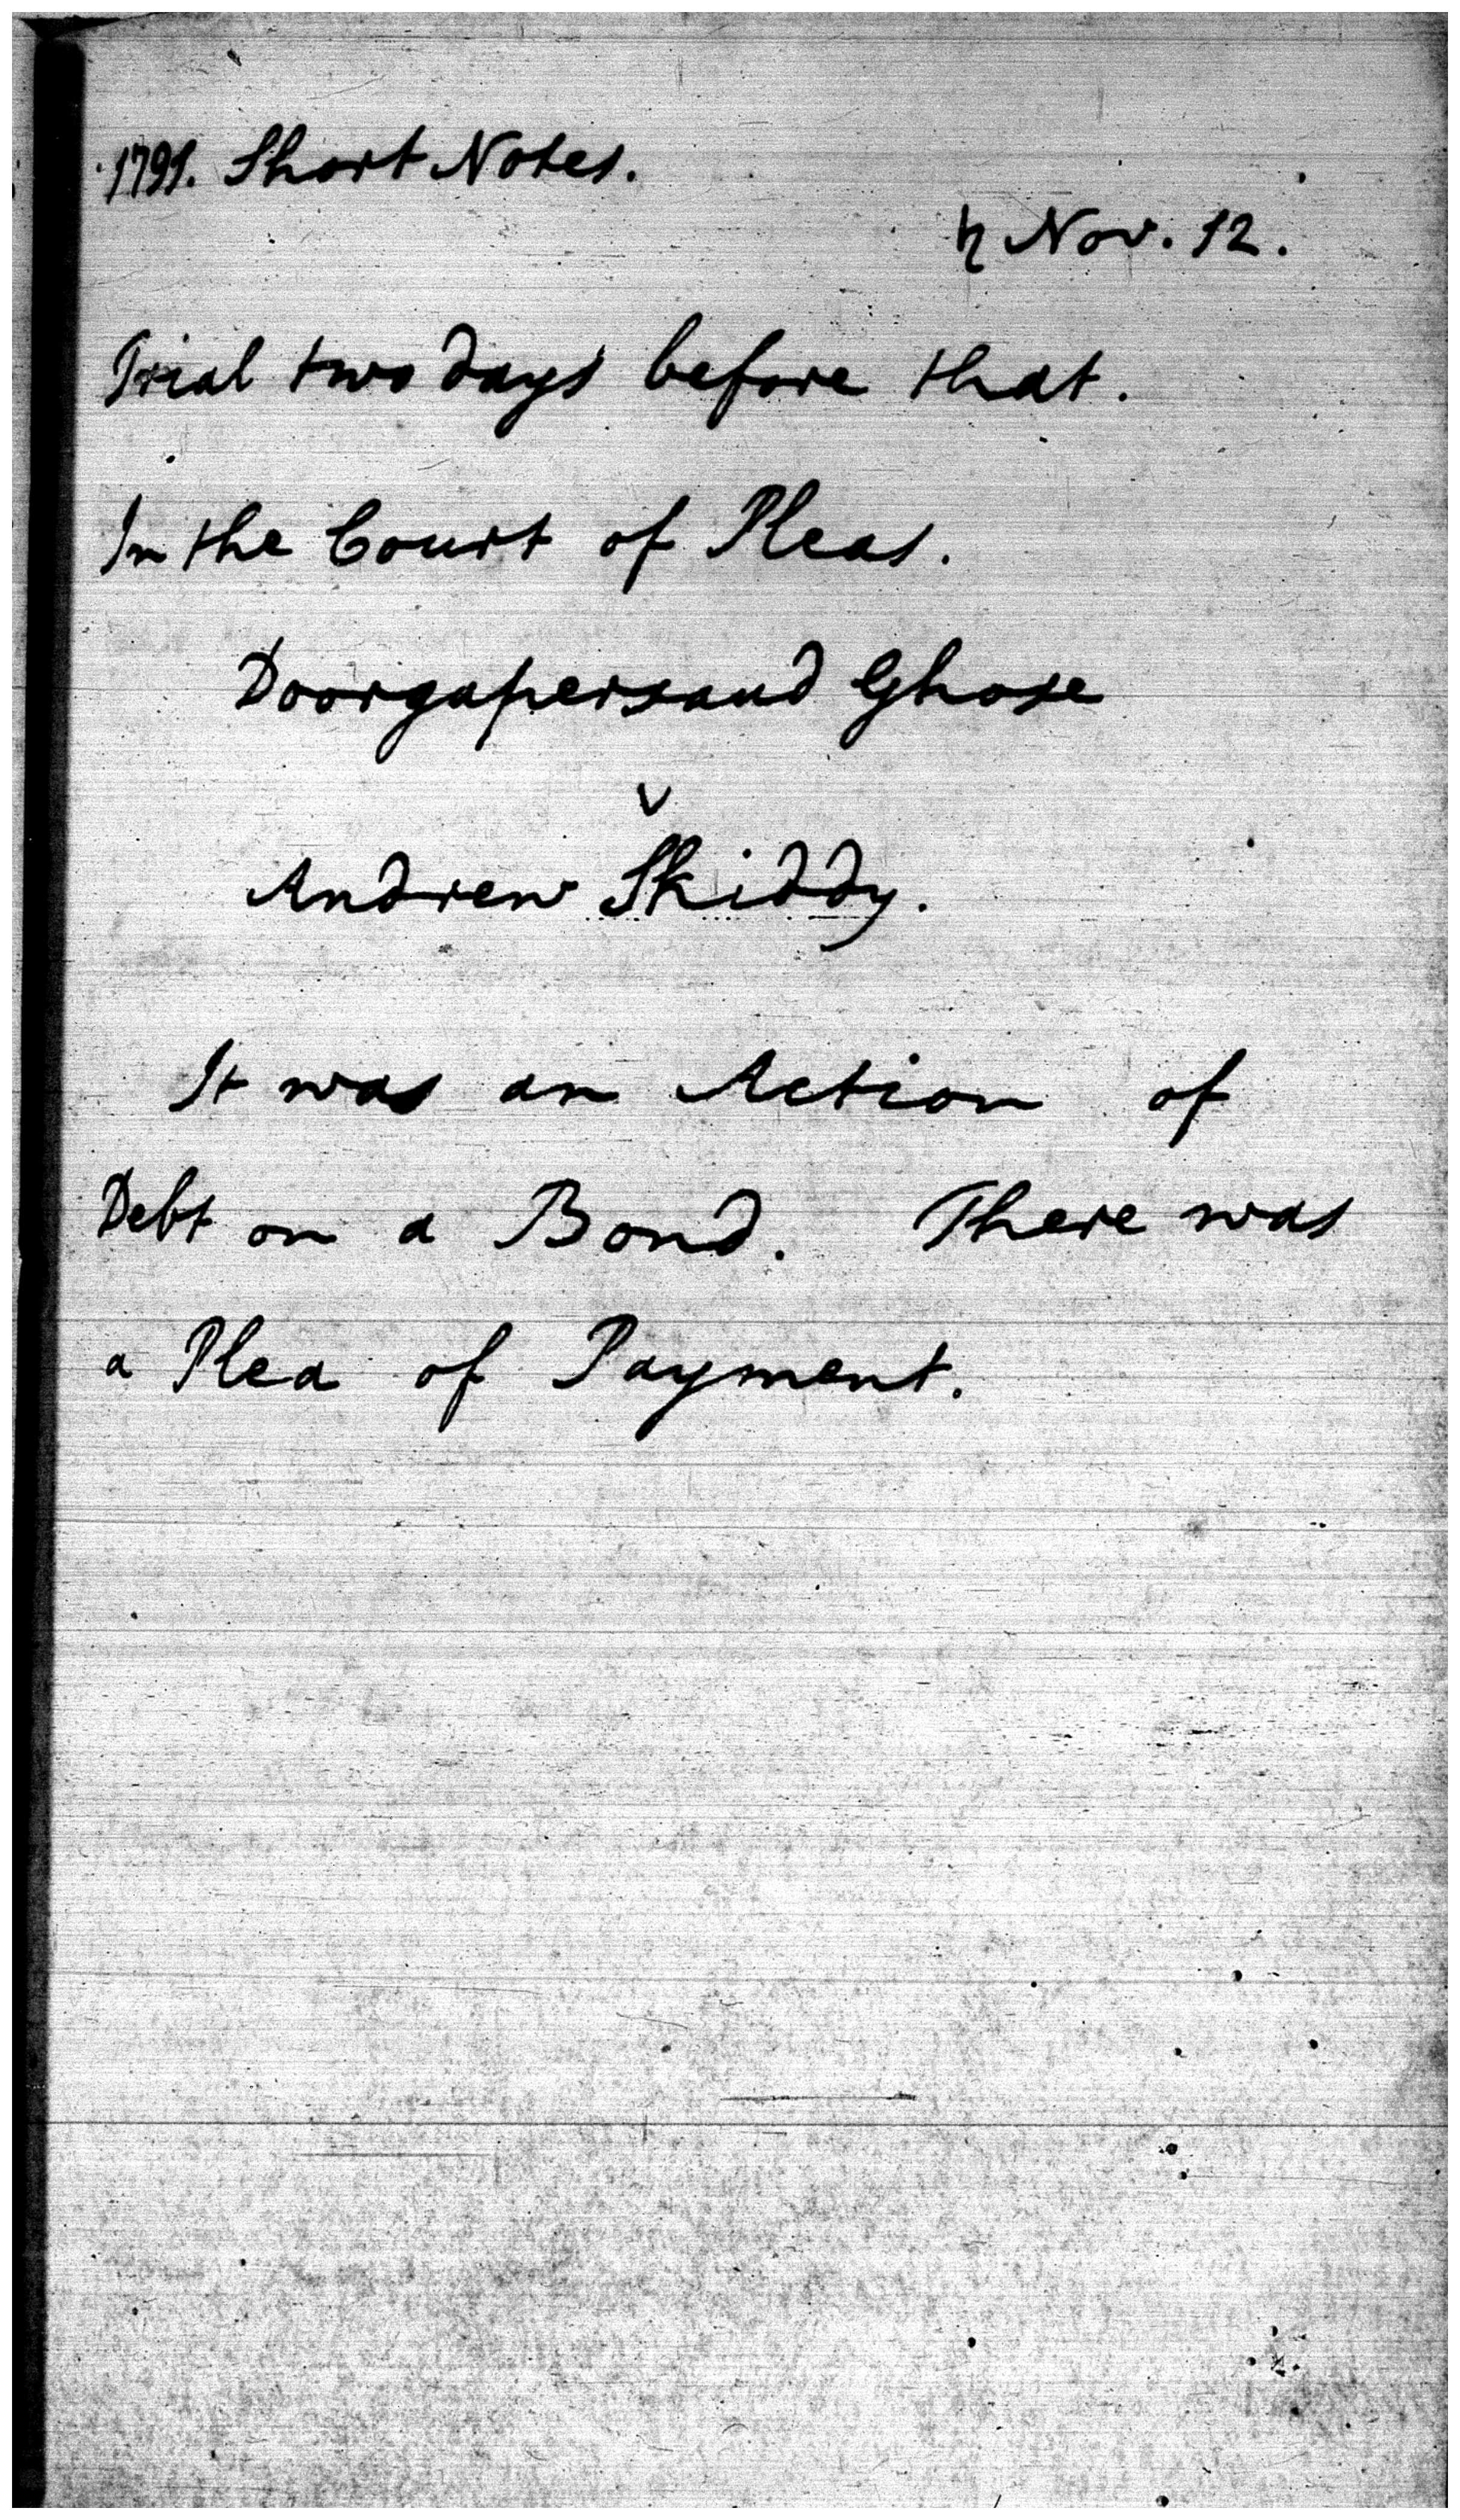 1791. Short Notes.
♄ Nov. 12.
Trial two days before that.
In the Court of Pleas.
Doorgapersaud Ghose
v
Andrew Skiddy.
It was an Action of
Debt on a Bond. There was
a Plea of Payment.